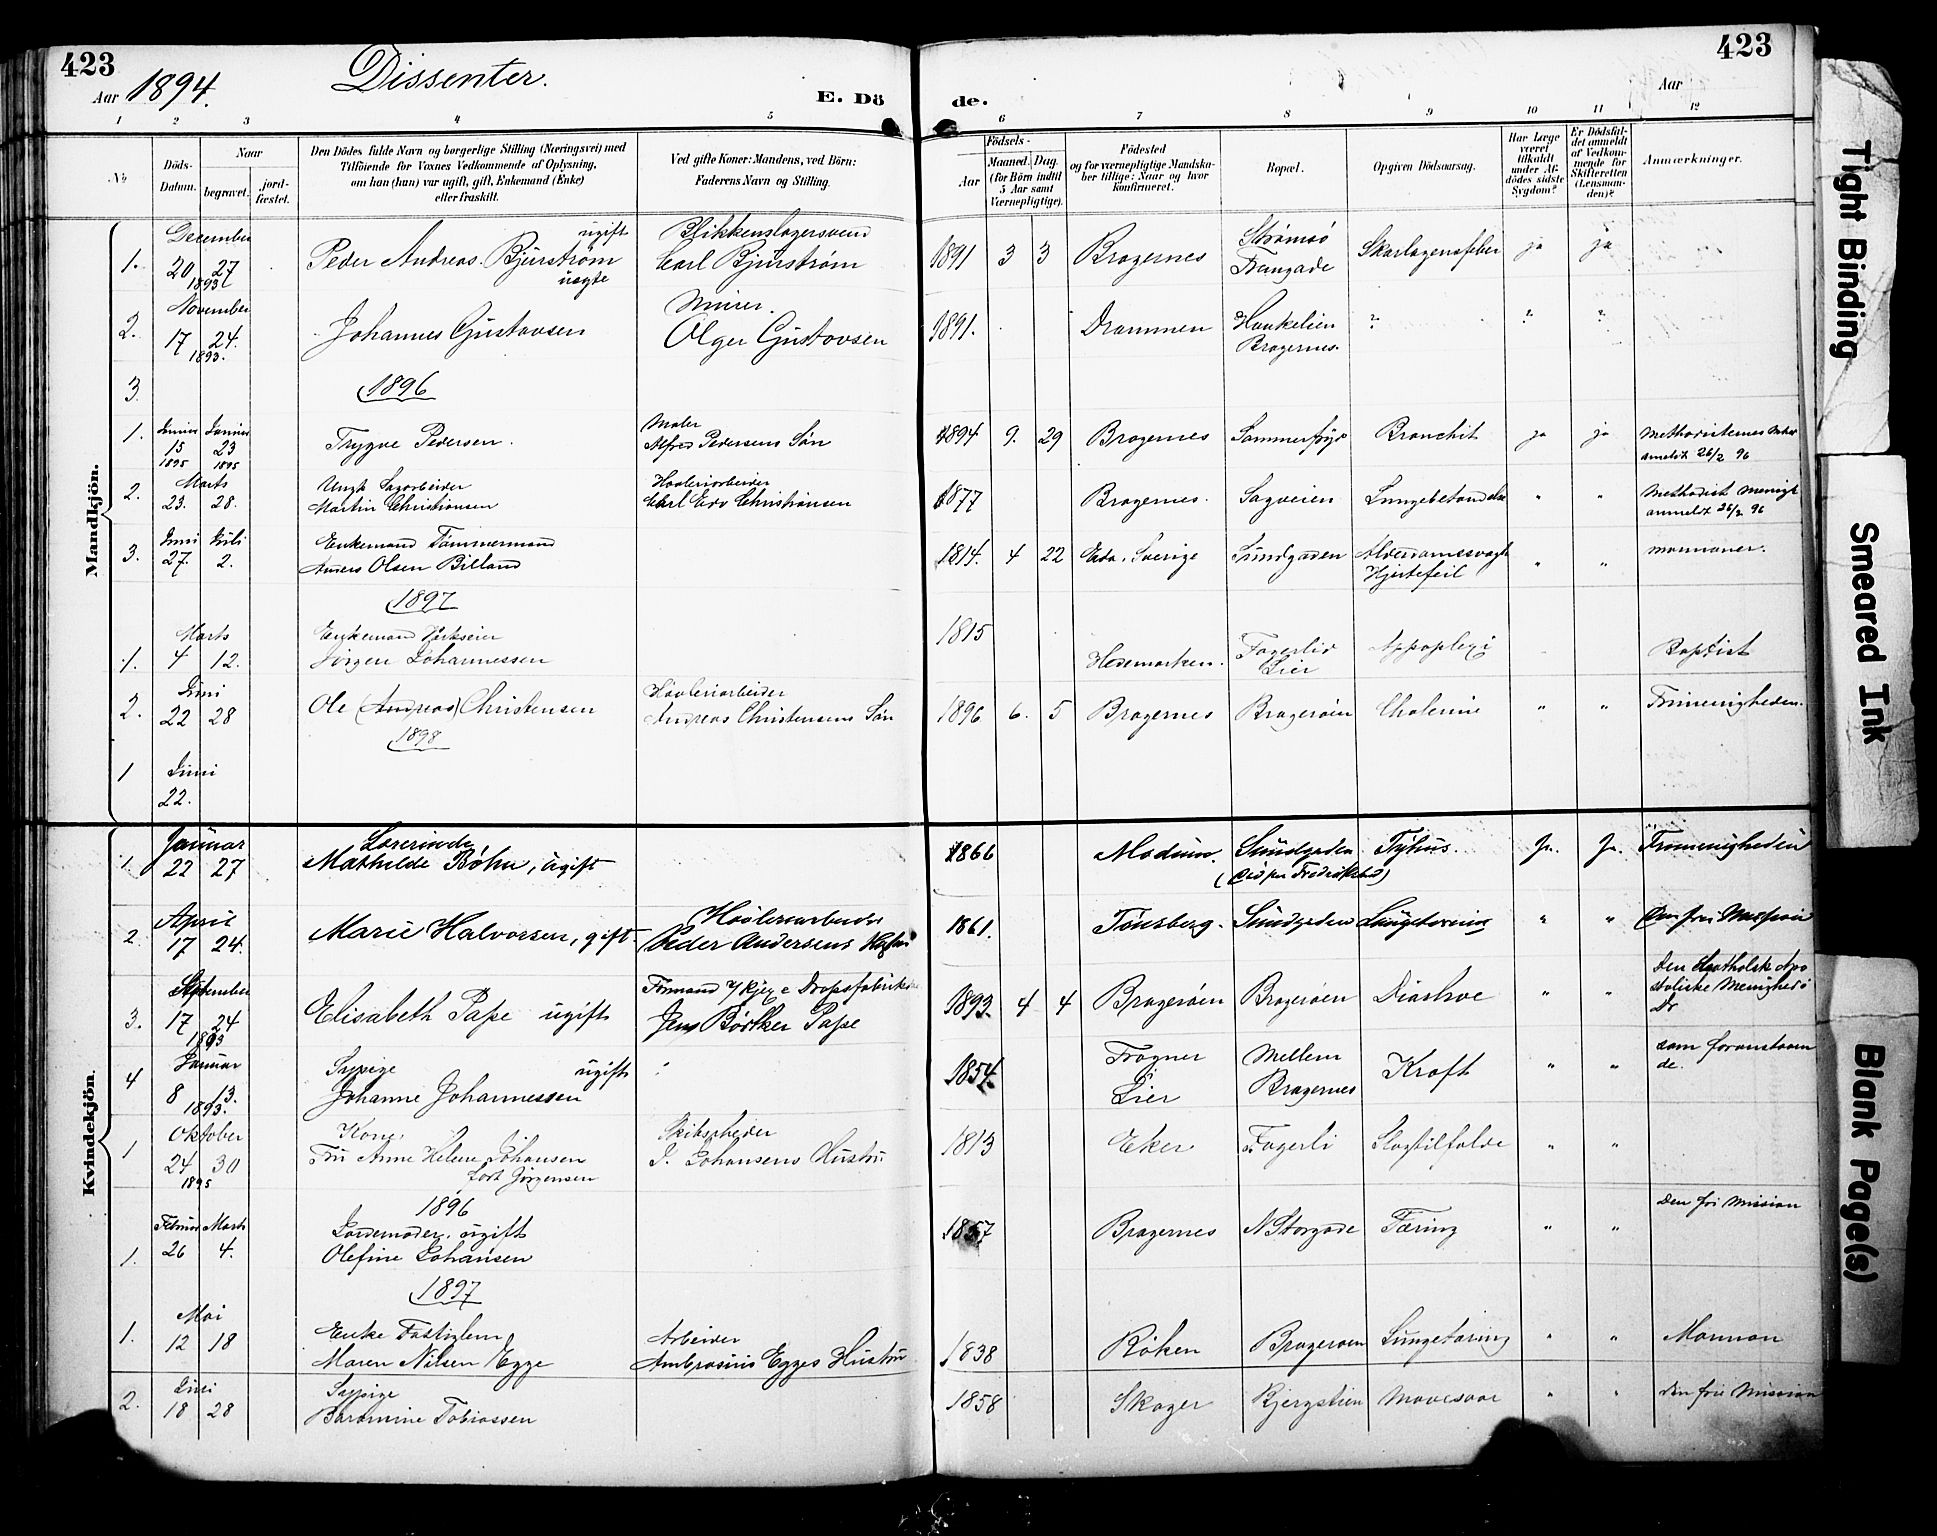 423
423
Aar 1894.
Dissenter.
E. Dö
de.
Aar
1 2 3 4 5 6 7 8 9 10 11 12
No
Döds-
Datum.
Naar
begravet.
jord-
fæstet.
Den Dödes fulde Navn og borgerlige Stilling (Næringsvei) med
Tilföiende for Voxnes Vedkommende af Oplysning,
om han (hun) var ugift, gift, Enkemand (Enke)
eller fraskilt.
Ved gifte Koner: Mandens, ved Börn:
Faderens Navn og Stilling.
Födsels-
Aar
Maaned. Dag.
(for Börn indtil
5 Aar samt
Værnepligtige).
Födested
og for værnepligtige Mandska-
ber tillige: Naar og hvor
konfirmeret.
Bopæl.
Opgiven Dödsaarsag.
Har Læge
været
tilkaldt
under Af-
dödes sidste
Sygdom?
Er Dödsfal-
det anmeldt
af Vedkom-
mende for
Skifteretten
(Lensman-
den)?
Anmærkninger.
Mandkjön.
December ugift Blikkenslagersvend Strømsø
1. 20 27 Peder Andreas Bjurstrøm Carl Bjurstrøm 1891 3 3 Bragernes Skarlagensfeber ja ja
1893 uægte Trangade
November Murer.
2. 17 24. Johannes Gustavsen Olger Gustavsen 1891. Drammen Haukelien ? ? ?
1893. Bragernes.
3. 1896
1. Januar Januar Maler
15 23 Trygve Pedersen. Alfred Pedersens Søn 1894 9. 29 Bragernes Bronchit ja ja Methodisternes
1895 1895 anmeldt 26/2 96
2. Marts Ungk Sagarbeider Høvleriarbeider
23. 28. Martin Christiansen Carl Edv Christiansen 1877 Bragernes. Sagveien Lungebetændelse " " Methodist Menigh
anmeldt 26/2 96
3. Juni Juli Enkemand Tømmermand
27. 2. Anders Olsen Billand 1814. 4 22 Eda, Sverige Strandgaden Alderdomssvagh " " mormoner.
Hjertefeil
1897
Marts Enkemand 1815
1. 4 12. Jørgen Johannessen Hedemarken. Fagerlid Appoplexi Baptist
Lier
Juni Høvleriarbeider
2. 22 28 Ole (Andreas) Christensen Andreas Christensens Søn 1896 6. 5 Bragernes Bragerøen Cholerine " " Frimenigheden.
1898
1 Juni
22.
Kvindekjön.
Januar Lærerinde
1. 22 27 Mathilde Bøhn, ugift 1866 Modum. Strandgaden Tyfus. Ja. Ja. Frimenigheden
(Død paa Fredrikstad)
April Høvleriarbeider
2. 17 24. Marie Halvorsen, gift Peder Andersens Hustru 1861. Tønsberg. Strandgaden Lungetæring " " Den fri Mission
September Formand v/ Kjex & Dropsfabriken Den Katholske Apo
3. 17 24 Elisabeth Pape ugift Jens Bødtker Pape 1893. 4 4 Bragerøen Bragerøen Diarhoe " " stoliske Menighed i
1893 Dr
Januar Sypige ugift Frogner Mellem som foranstaaen
4 8 13. Johanne Johannessen 1854. Lier Bragernes Kræft " " de.
1893.
Oktober Kone Skibsrheder
1 24 30 Fru Anne Helene Johansen J. Johansens Hustru 1813 Eker Fagerli Slagtilfælde " "
1895 født Jørgensen
1896
Februar Marts Jordemoder, ugift Den fri Mission
1. 26 4. Olefine Johansen 1857 Bragernes N Storgade Tæring " "
1897
Mai Enke Fattiglem Arbeider
1. 12 18 Maren Nilsen Egge Ambrosius Egges Hustru 1838 Røken Bragerøen Lungetæring " " Mormon
Juni Sypige
2. 18 28 Tobiassen 1858 Skoger Bjergstien Mavesaar " " Den frie Mission
Tight Binding
Smeared Ink
Blank Page(s)